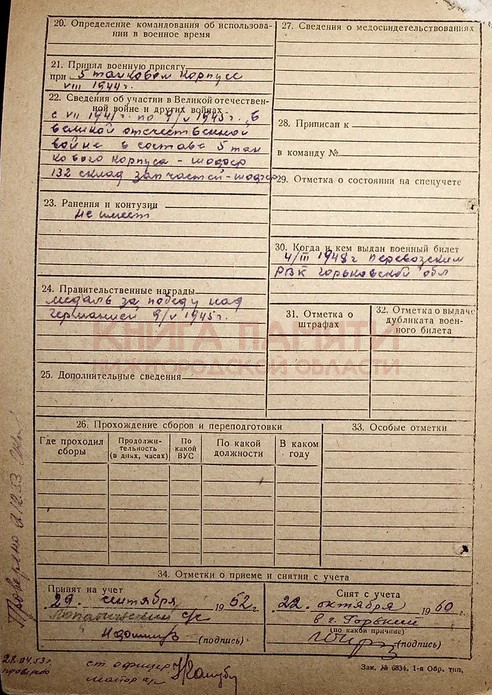 20. Определение командования об использова-
нии в военное время
21. Принял военную присягу
при 5 танковом корпусе
VIII 1941г.
22. Сведения об участии в Великой отечествен-
ной войне и других войнах
с VII 1941г. по 9/V 1945г. в
великой отечественной
войне в составе 5 тан
кового корпуса - шофер
132 склад запчастей - шофер
23. Ранения и контузии
не имеет
24. Правительственные награды
медаль за победу над
германией 9/V 1945г.
25. Дополнительные сведения
27. Сведения о медосвидетельствованиях
28. Приписан к
в команду №
29. Отметка о состоянии на спецучете
30. Когда и кем выдан военный билет
4/III 1948г Перевозским
РВК Горьковской обл
31. Отметка о
штрафах
32. Отметка о выдаче
дубликата воен-
ного билета
КНИГА ПАМЯТИ
НИЖЕГОРОДСКОЙ ОБЛАСТИ
26. Прохождение сборов и переподготовки
Где проходил
сборы
Продолжи-
тельность
(в днях, часах)
По
какой
ВУС
По какой
должности
В каком
году
33. Особые отметки
34. Отметки о приеме и снятии с учета
Принят на учет
29. сентября 1952г.
с/с
(подпись)
Снят с учета
22. октября 1960г.
в г. Горький
(по какой причине)
(подпись)
Проверено
28.04.53г.
проверено
ст. офицер
майор а/с
Зак. № 6834. 1-я Обр. тип.